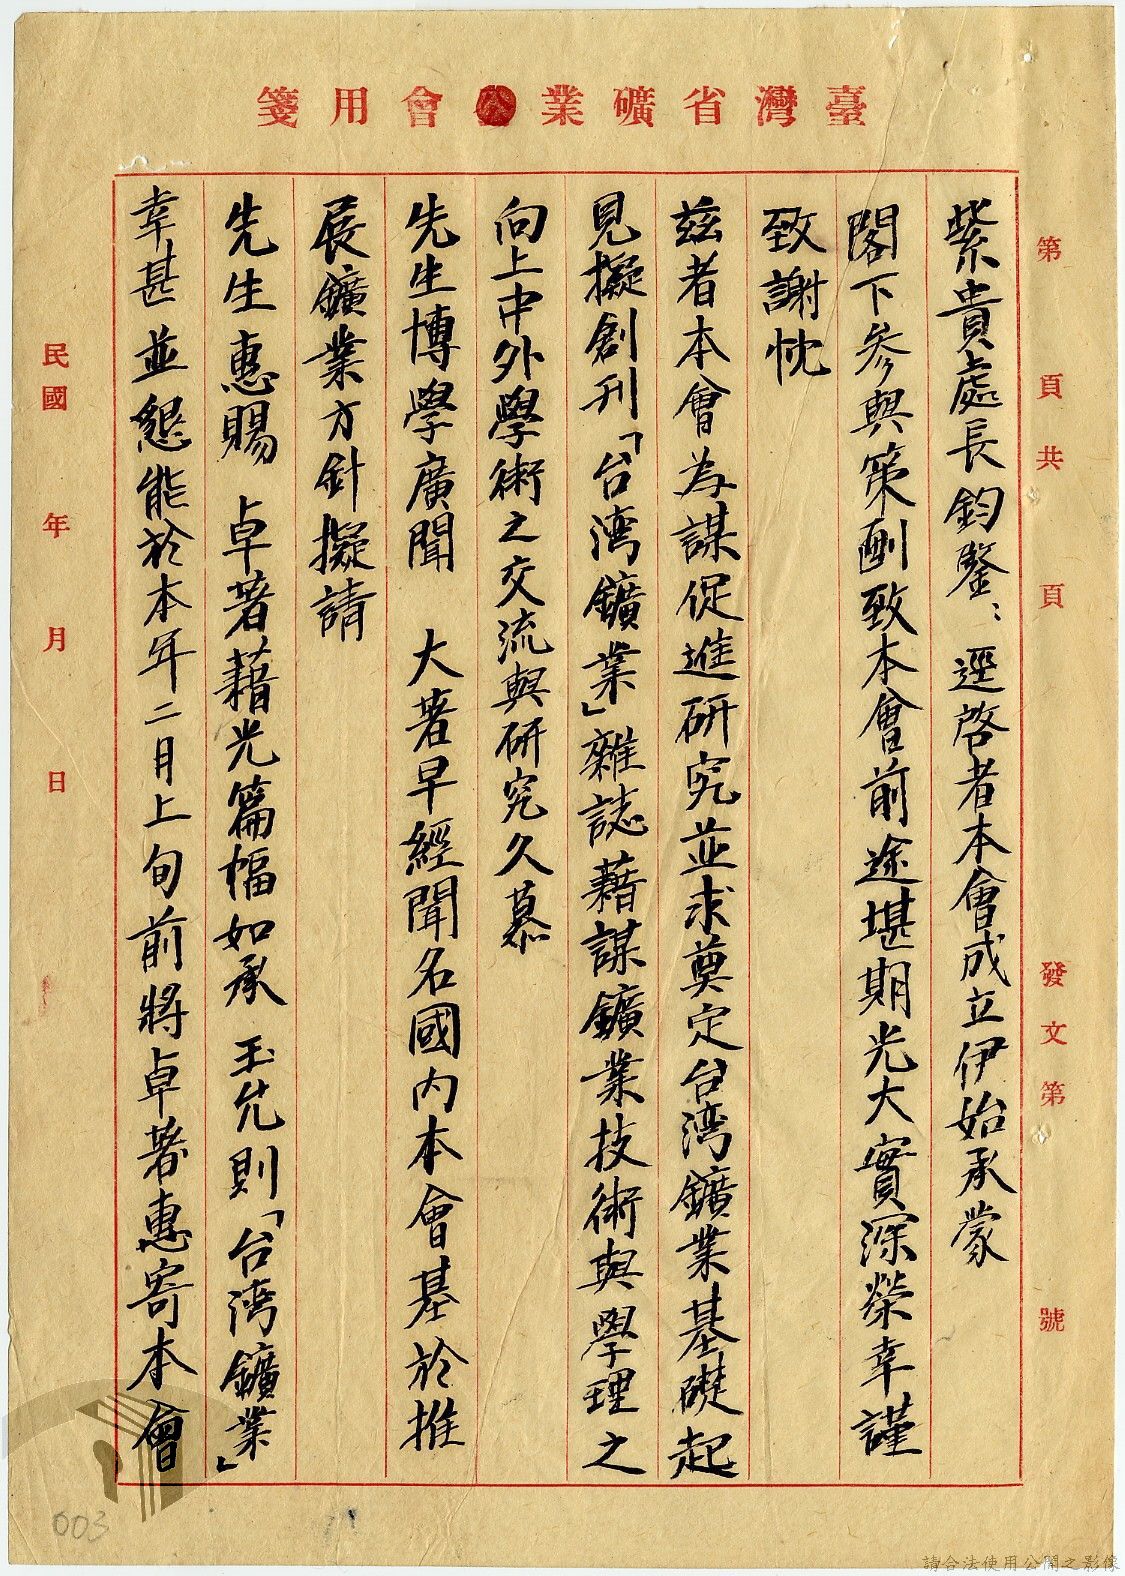 臺灣省礦業公會用箋
第 頁 共 頁 發文第 號
紫貴處長鈞鑒：逕啓者本會成立伊始承蒙
閣下參與策劃致本會前途堪期光大實深榮幸謹
致謝忱
茲者本會為謀促進研究並求奠定台湾鑛業基礎起
見擬創刊「台湾鑛業」雜誌藉謀鑛業技術與學理之
向上中外學術之交流與研究久慕
先生博學廣聞 大著早經聞名國內本會基於推
展鑛業方針擬請
先生惠賜 卓著藉光篇幅如承 玉允則「台湾鑛業」
幸甚並懇能於本年二月上旬前將卓著惠寄本會
民國 年 月 日
003
請合法使用公開之影像